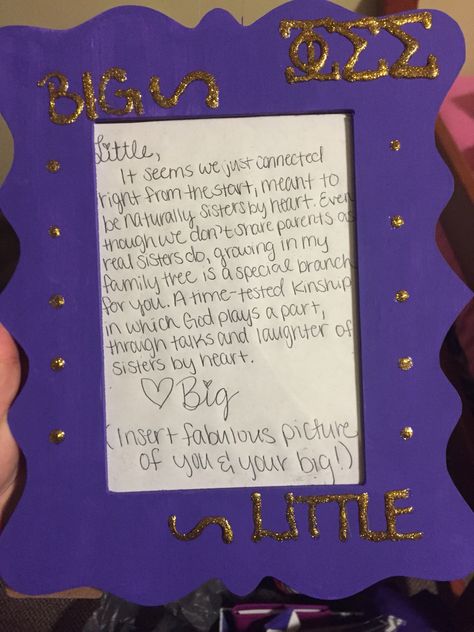 ΦΣΣ
BIG ~
Little,
It seems we just connected
right from the start, meant to
be naturally sisters by heart. Even
though we don't share parents as
real sisters do, growing in my
family tree is a special branch
for you. A time-tested kinship
in which God plays a part,
through talks and laughter of
sisters by heart.
♡ Big
(insert fabulous picture
of you & your big!)
~ LITTLE